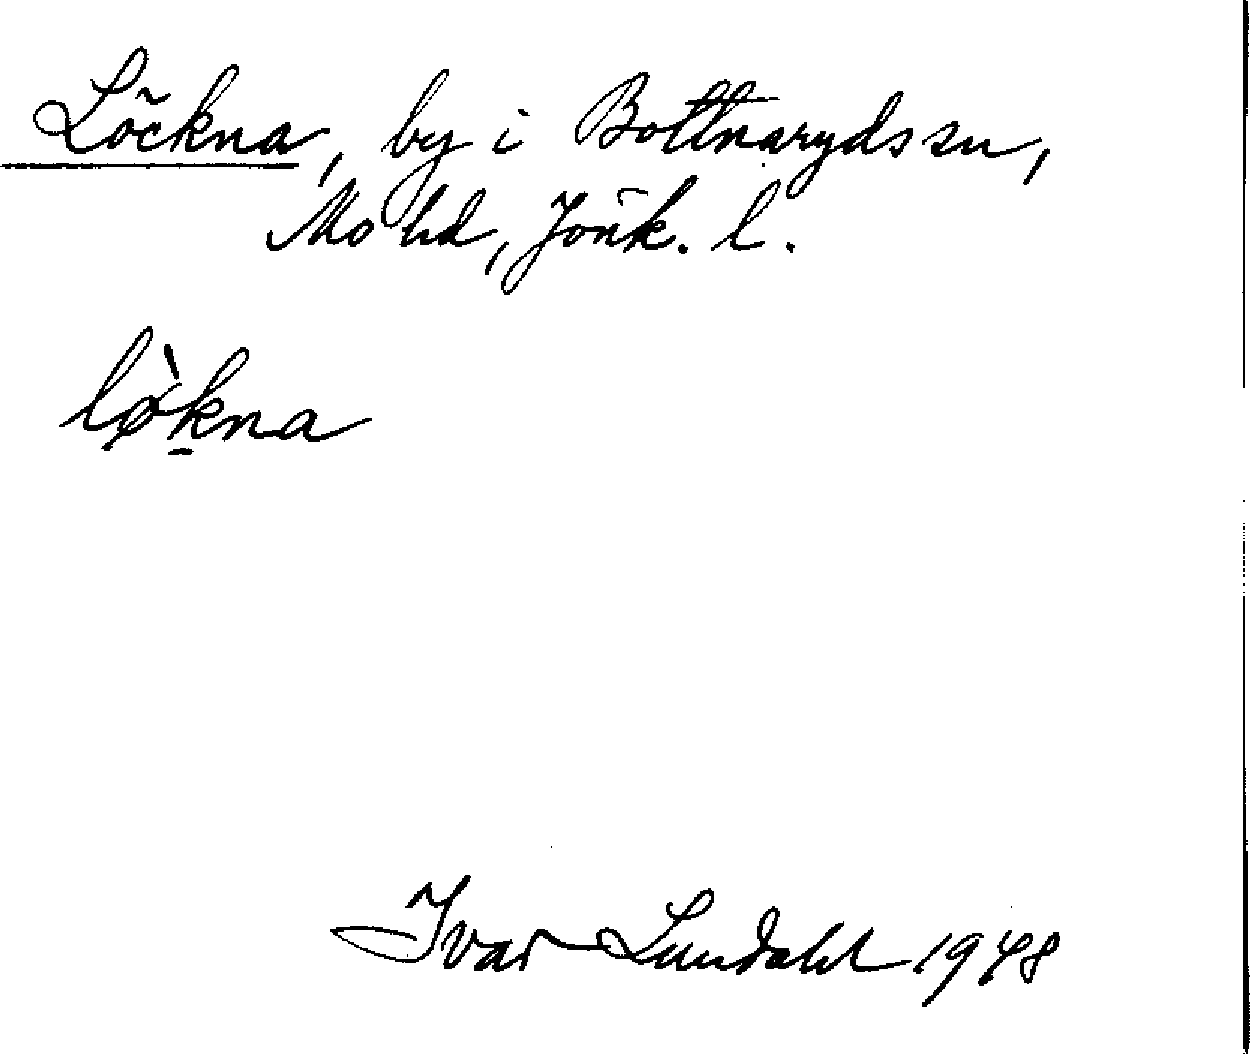 Löckna, by i Bottnaryds sn,
Mo hd, Jönk. l.
lø̀k̠na
Ivar Lundahl 1948